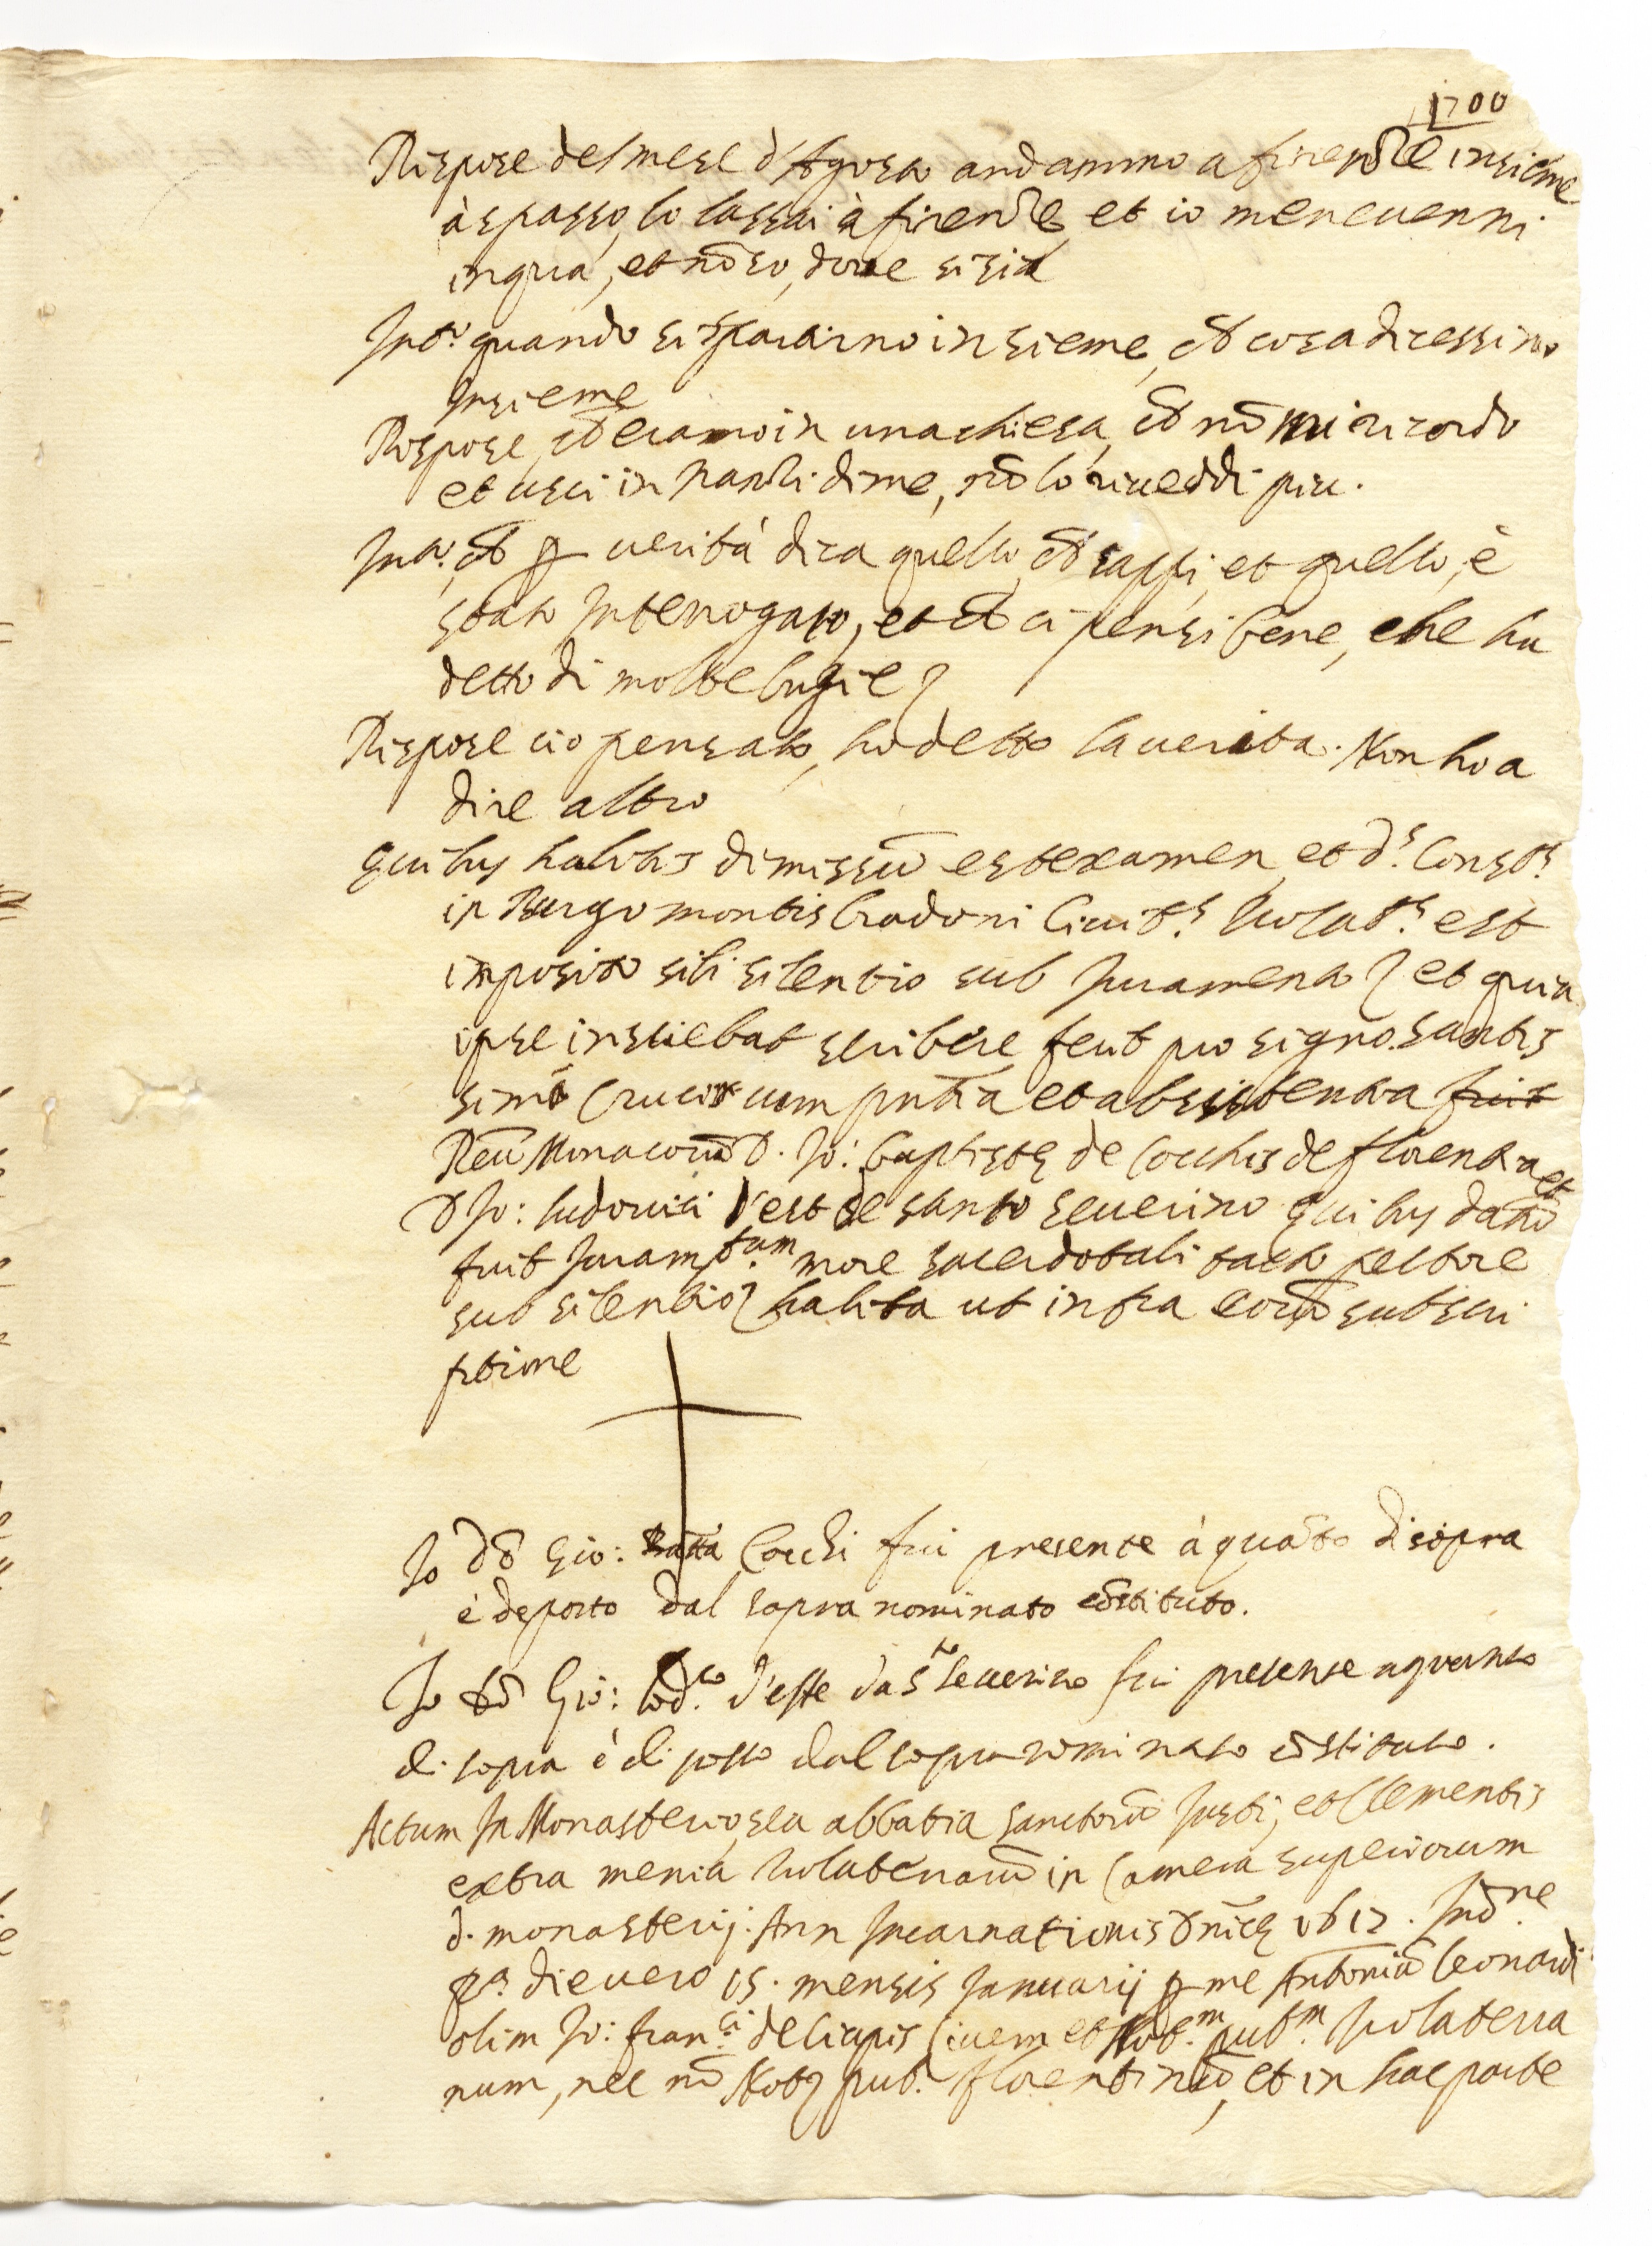 1700
Rispose del mese d'Agosto andammo a firenze insieme
à spasso, lo lassai à firenze, et io mene venni
in qua, et nõ so, dove si sia
Intº. quando si spararno insieme, ch cosa dicessino
Insieme
Rispose, ch eramo in una chiesa, ch nõ mi ricordo
et usci in nanzi di me, nõ lo riveddi piu.
Intº. ch p verità dica quello, ch sappi, et quello, è
stato Interrogato, et ch ci pensi bene, che ha
detto di molte bugie
Rispose cio pensato, ho detto la verita. Non ho a
dire altro
Quibus habitis dimissũ est examen, et dˢ. Constˢ.
in Burgo montis bradoni Civitˢ. Volatˢ. est
imposito sibi silentio sub Juramento et quia
ipse insciebat scribere fecit pro signo. santis
sime Crucis cum pñtia et absistentia fuit
Reũ Monacorũ D. Jo: baptiste de Cocchis de florentia et
D Jo: ludovici d'est de santo severino quibus datũ
fuit Juramᵗᵘᵐ. more sacerdotali tacto pectore
sub silentio habita ut infra eorũ subscri
ptione
Jo Dõ Gio: Batta Cocchi fui presente à quãto di sopra
è deposto dal sopra nominato cõstituto.
Jo Dõ Gio: Lodᶜᵒ. d'este da Sᵗᵒ Severino fui presente a quanto
di sopra è di posto dal sopra nominato cõstituto.
Actum In Monasterio, sea abbatia sanctorũ Justi, et Clementis
extra menia Volaterrarũ in Camera superiorum
d. monasterij. Ann Incarnationis Dñice 1612. Indⁿᵉ.
die vero 15. mensis Januarij p me Antoniũ leonardi
olim Jo: franᶜⁱ. de Civem et Notᵐ. pubᵐ. Volaterra
num, nec nõ Notũ pub. florentinũ, et in hac parte